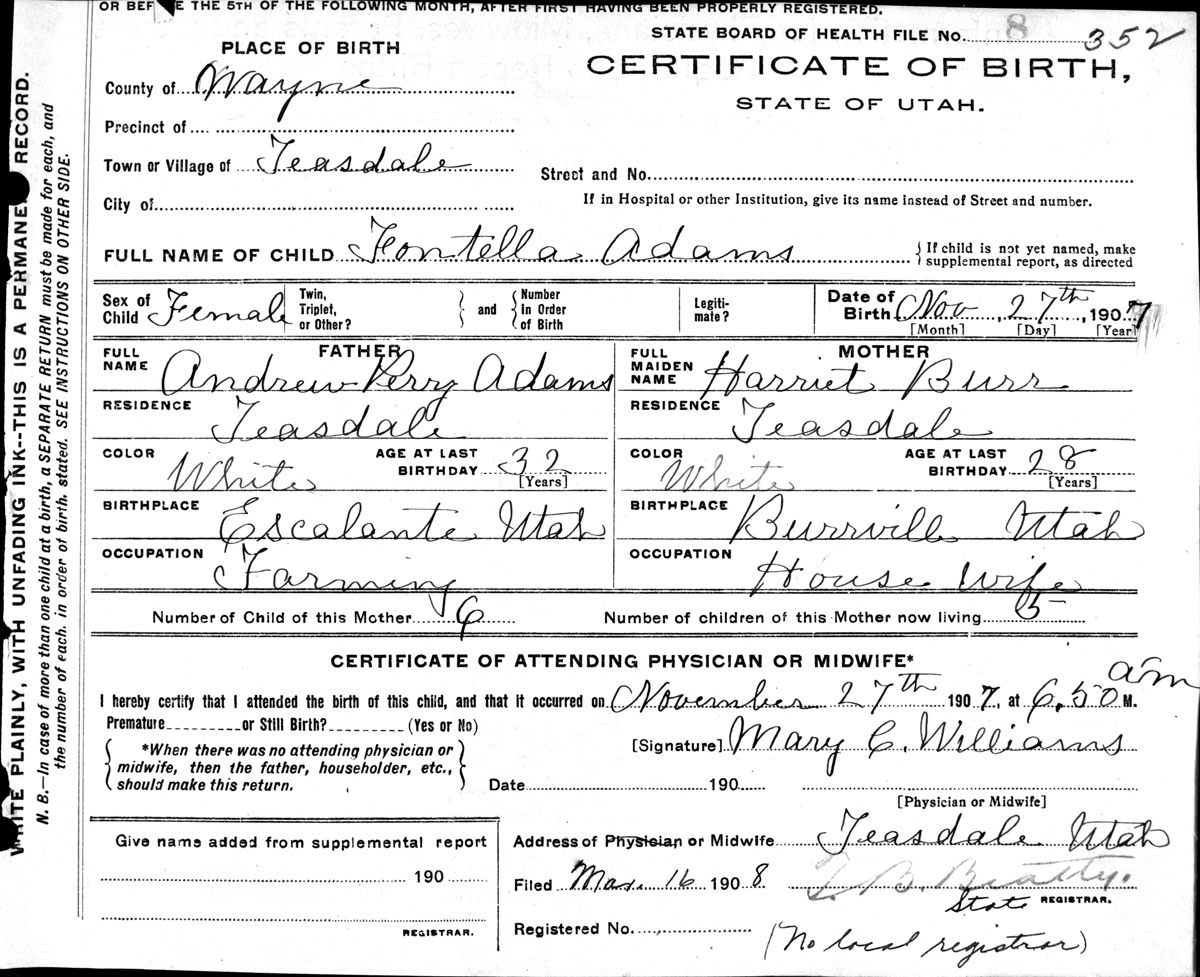 OR BEF E THE 5TH OF THE FOLLOWING MONTH, AFTER FIRST HAVING BEEN PROPERLY REGISTERED.
WRITE PLAINLY, WITH UNFADING INK--THIS IS A PERMANE RECORD.
N. B.—In case of more than one child at a birth, a SEPARATE RETURN must be made for each, and
the number of each, in order of birth, stated. SEE INSTRUCTIONS ON OTHER SIDE.
STATE BOARD OF HEALTH FILE No. 8 352
PLACE OF BIRTH
CERTIFICATE OF BIRTH,
STATE OF UTAH.
County of Wayne
Precinct of
Town or Village of Teasdale
Street and No.
City of
If in Hospital or other Institution, give its name instead of Street and number.
FULL NAME OF CHILD Fontella Adams { If child is not yet named, make
supplemental report, as directed
Sex of Child Female Twin, Triplet, or Other? } and { Number In Order of Birth Legiti- mate? Date of Birth Nov, 27th, 1907
[Month] [Day] [Year]
FATHER MOTHER
FULL NAME Andrew Perry Adams FULL MAIDEN NAME Harriet Burr
RESIDENCE Teasdale RESIDENCE Teasdale
COLOR White AGE AT LAST BIRTHDAY 32 [Years] COLOR White AGE AT LAST BIRTHDAY 28 [Years]
BIRTHPLACE Escalante Utah BIRTHPLACE Burrville Utah
OCCUPATION Farming OCCUPATION House wife
Number of Child of this Mother 6 Number of children of this Mother now living 5
CERTIFICATE OF ATTENDING PHYSICIAN OR MIDWIFE*
I hereby certify that I attended the birth of this child, and that it occurred on November 27th 1907, at 6,50 am M.
Premature or Still Birth? (Yes or No)
{ *When there was no attending physician or
midwife, then the father, householder, etc.,
should make this return. }
[Signature] Mary C. Williams
Date 190
[Physician or Midwife]
Give name added from supplemental report
190
REGISTRAR.
Address of Physician or Midwife Teasdale Utah
Filed Mar. 16 1908 T. B. Beatty.
State REGISTRAR.
Registered No.
(No local registrar)